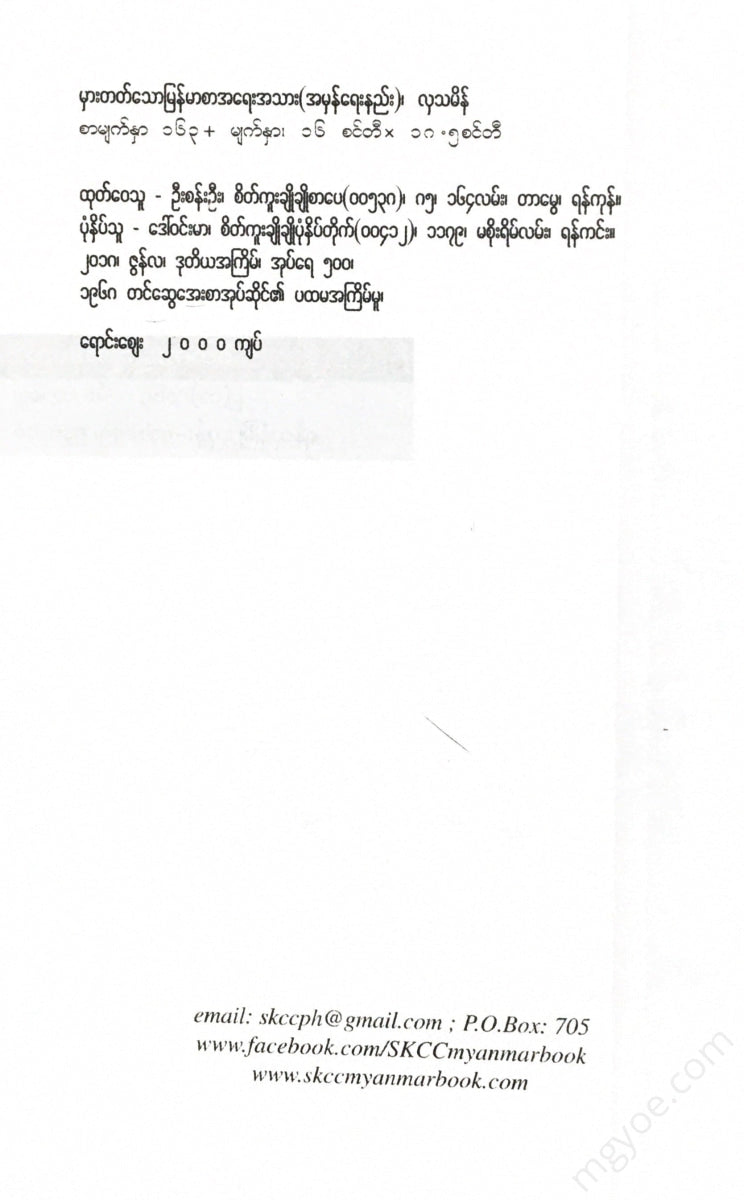 မှားတတ်သောမြန်မာစာအရေးအသား(အမှန်ရေးနည်း)၊ လှသမိန်
စာမျက်နှာ ၁၆၃ + မျက်နှာ၊ ၁၆ စင်တီ × ၁၈.၅ စင်တီ
ထုတ်ဝေသူ - ဦးစန်းဦး၊ စိတ်ကူးချိုချိုစာပေ(၀၀၅၃၈)၊ ၈၅၊ ၁၆၄လမ်း၊ တာမွေ၊ ရန်ကုန်။
ပုံနှိပ်သူ - ဒေါ်ဝင်းမာ၊ စိတ်ကူးချိုချိုပုံနှိပ်တိုက်(၀၀၄၁၂)၊ ၁၁၇၉၊ မစိုးရိမ်လမ်း၊ ရန်ကင်း။
၂၀၁၈၊ ဇွန်လ၊ ဒုတိယအကြိမ်၊ အုပ်ရေ ၅၀၀၊
၁၉၆၈ တင်ဆွေအေးစာအုပ်ဆိုင်၏ ပထမအကြိမ်မူ၊
ရောင်းဈေး ၂ ၀ ၀ ၀ ကျပ်
email: skccph@gmail.com ; P.O.Box: 705
www.facebook.com/SKCCmyanmarbook
www.skccmyanmarbook.com
mgyoe.com